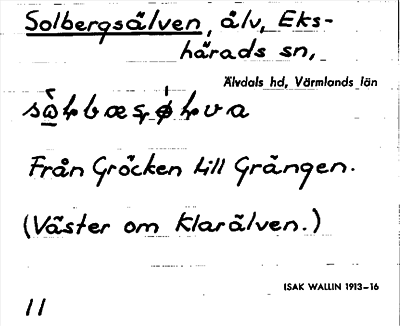 Solbergsälven, älv, Eks-
härads sn,
Älvdals hd, Värmlands län
Från Gröcken till Grängen.
(Väster om Klarälven.)
ISAK WALLIN 1913–16
11